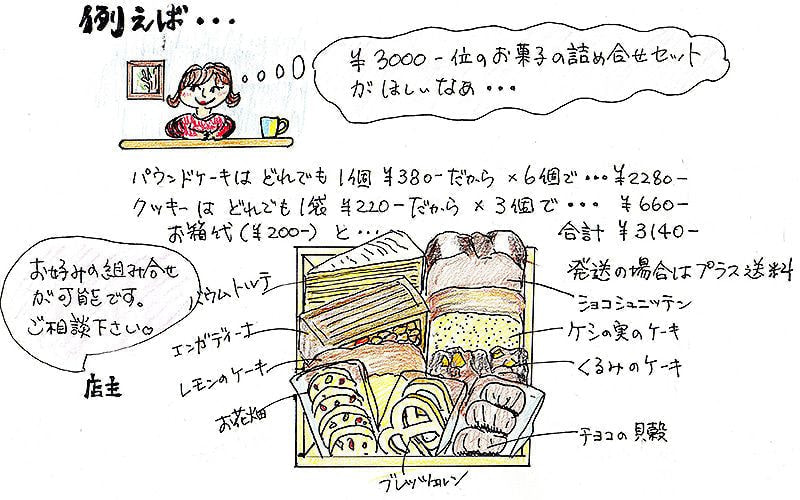 例えば・・・
¥3000-位のお菓子の詰め合せセット
がほしいなあ・・・
パウンドケーキは どれでも 1個 ¥380-だから ×6個で・・・¥2280-
クッキーは どれでも 1袋 ¥220-だから × 3個で・・・ ¥660-
お箱代(¥200-)と・・・ 合計 ¥3140-
発送の場合はプラス送料
お好みの組み合せ
が可能です。
ご相談下さい♡
店主
バウムトルテ
エンガディーナ
レモンのケーキ
お花畑
ブレッツェルン
ショコシュニッテン
ケシの実のケーキ
くるみのケーキ
チョコの貝殻